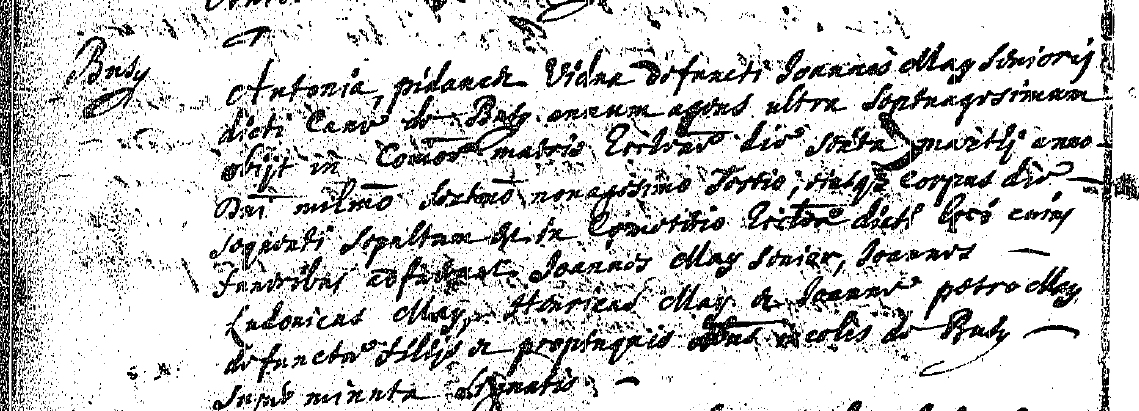 Busy
Antonia pidancet Vidua defuncti Joannis May Senioris
dicti de Busy annum agens ultra Septuagesimum
obijt in Com̄oe matris Ecclesiae die Sexta martij anno
Dni milmo Sexmo nonagesimo tertio, eiusq; corpus die
sequenti sepultum est in Coemeterio dicti loci cuius
funeribus adfuerunt Joannes May Senior, Joannes
Ludovicus May, Henricus May & Joanne petro May
defunctae filijs & propinquis incolis de Busy
Sunt minuta Signatis